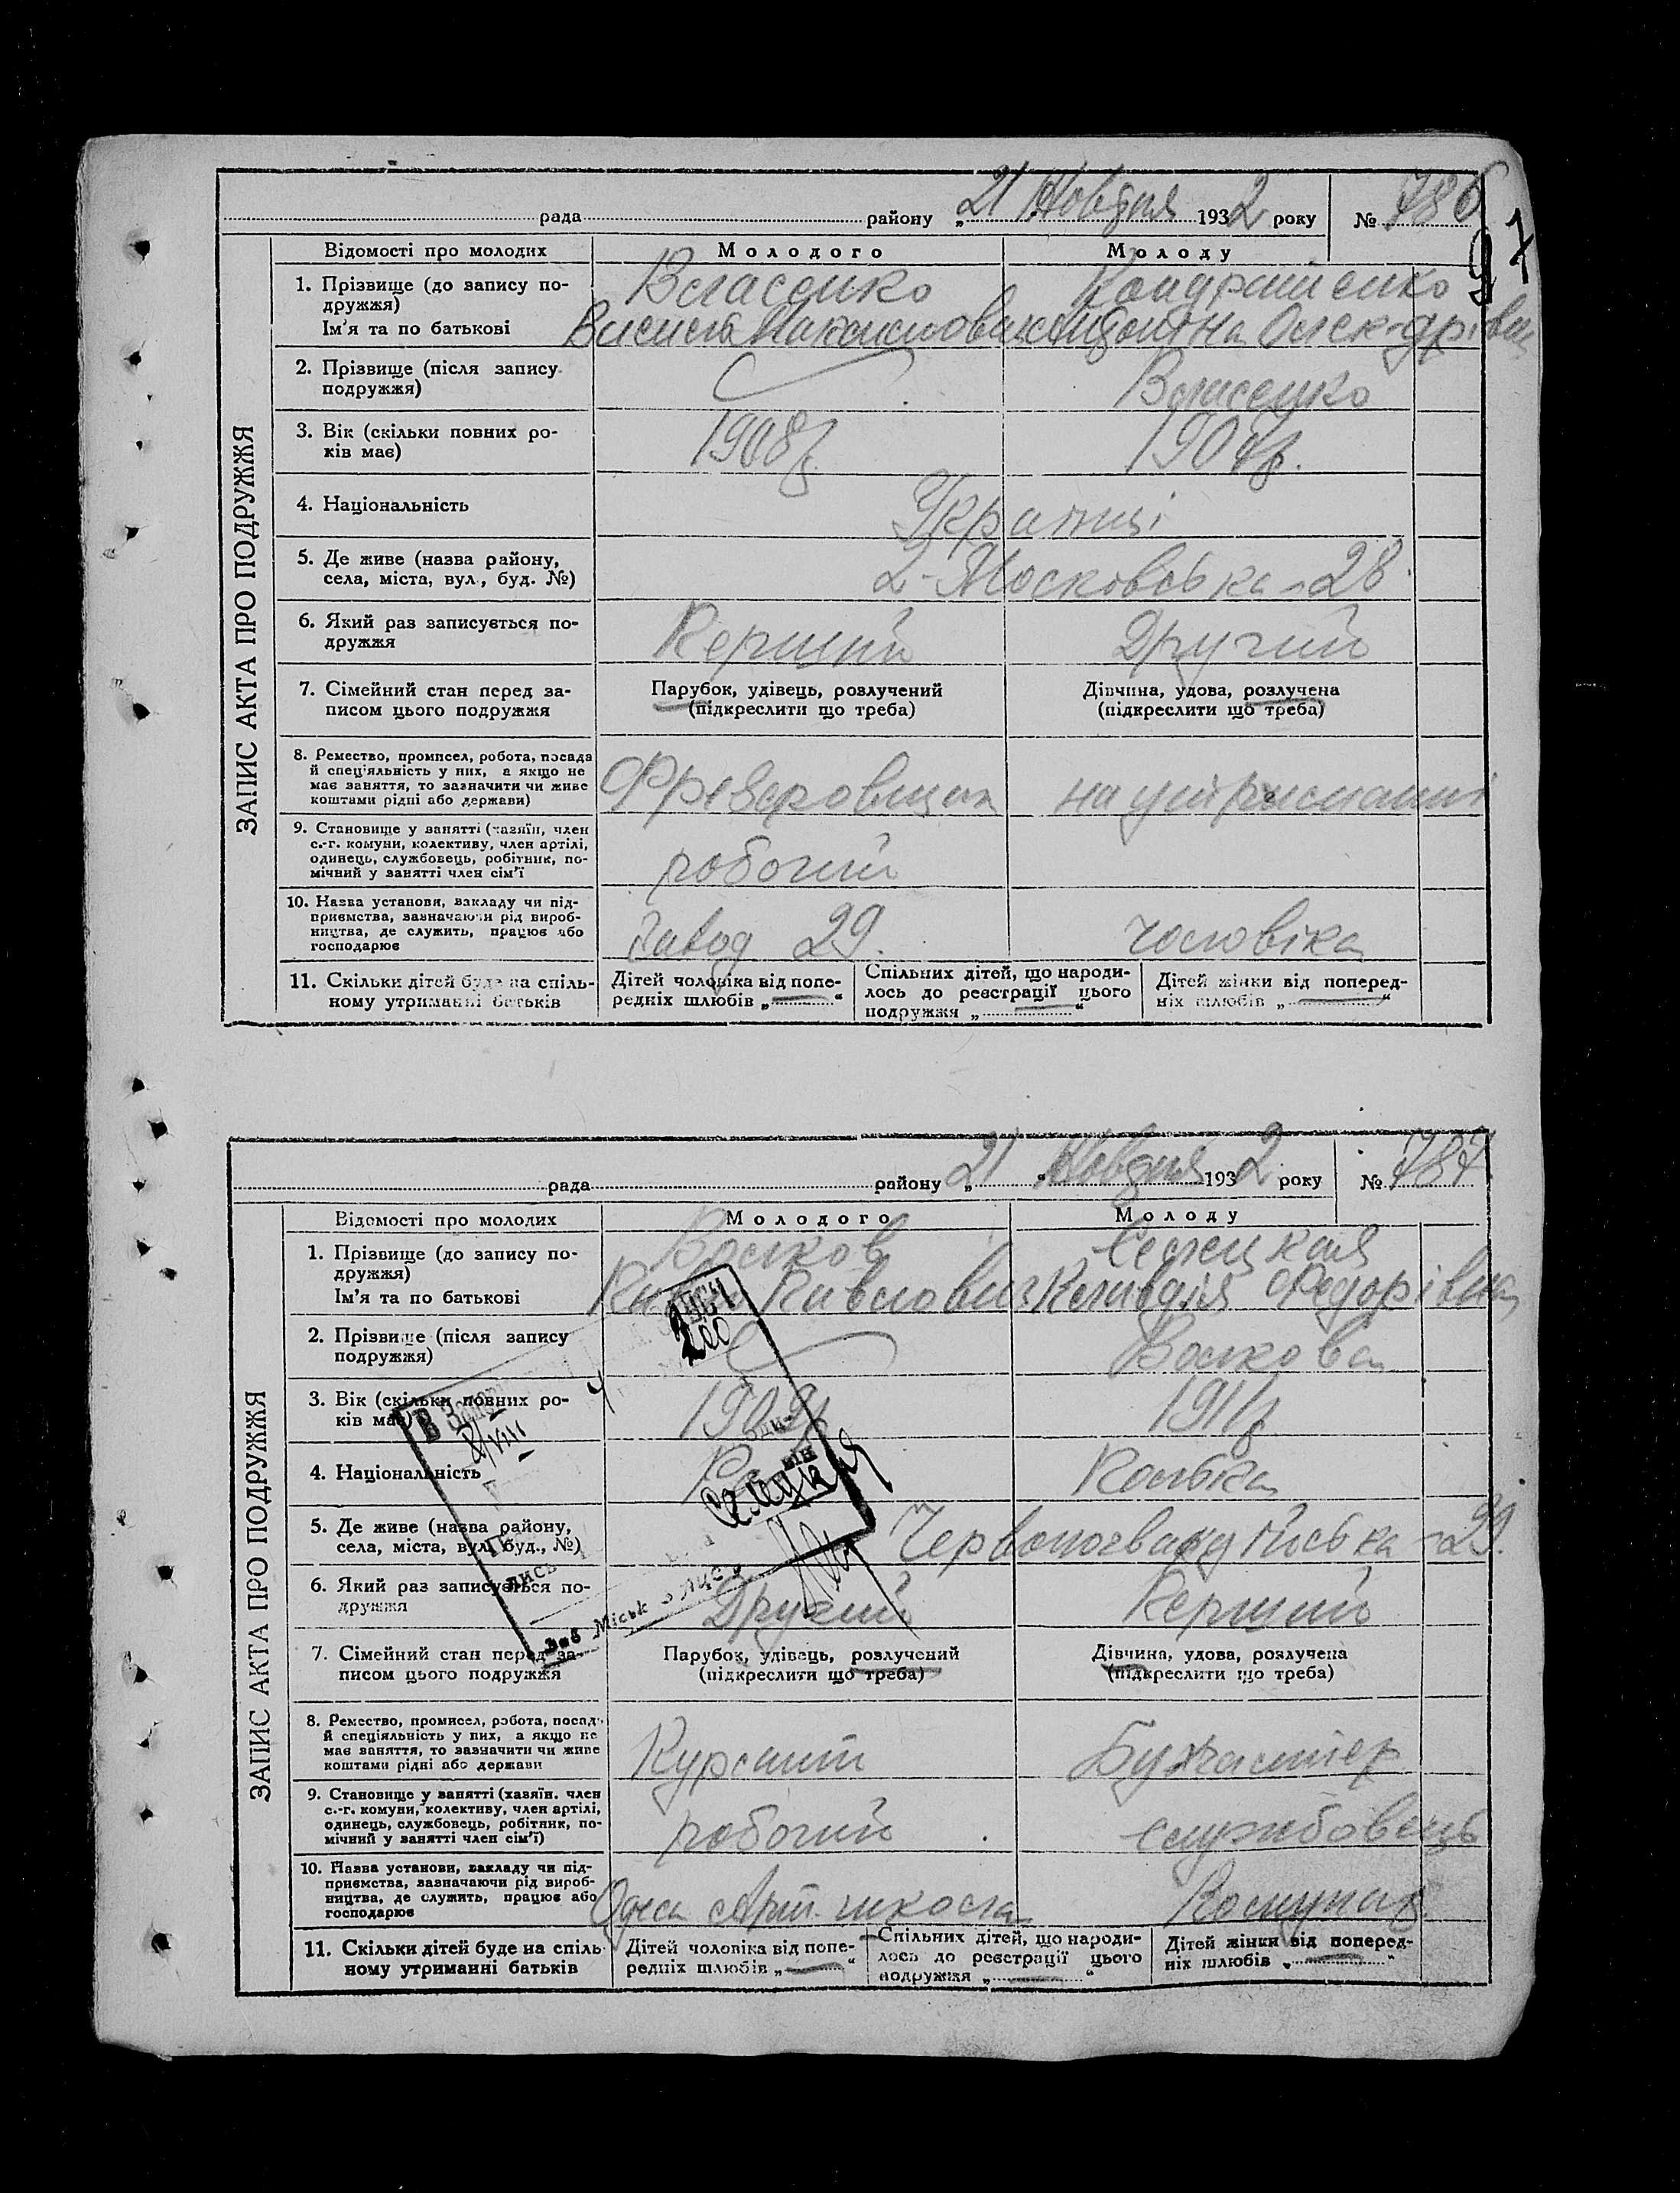 рада району „21 Жовтня 1932 року № 786
97
ЗАПИС АКТА ПРО ПОДРУЖЖЯ
Відомості про молодих Молодого Молоду
1. Прізвище (до запису по-
дружжя) Власенко
Ім'я та по батькові Олександрівна
2. Прізвище (після запису
подружжя) Власенко
3. Вік (скільки повних ро-
ків має) 1908 р. 1904 р.
4. Національність Українці
5. Де живе (назва району,
села, міста, вул., буд. №) 2-Московська 28
6. Який раз записується по-
дружжя Перший Другий
7. Сімейний стан перед за-
писом цього подружжя
Парубок, удівець, розлучений
(підкреслити що треба)
Дівчина, удова, розлучена
(підкреслити що треба)
8. Ремество, промисел, робота, посада
й спеціяльність у них, а якщо не
має заняття, то зазначити чи живе
коштами рідні або держави) на утриманні
9. Становище у занятті (хазяїн, член
с.-г. комуни, колективу, член артілі,
одинець, службовець, робітник, по-
мічний у занятті член сім'ї робочий
10. Назва установи, закладу чи під-
приємства, зазначаючи рід вироб-
ництва, де служить, працює або
господарює Завод 29. чоловіка
11. Скільки дітей буде на спіль-
ному утриманні батьків
Дітей чоловіка від попе-
редніх шлюбів „ — “
Спільних дітей, що народи-
лось до реєстрації цього
подружжя „ — “
Дітей жінки від поперед-
ніх шлюбів „ — “
рада району „21 Жовтня 1932 року № 787
ЗАПИС АКТА ПРО ПОДРУЖЖЯ
Відомості про молодих Молодого Молоду
1. Прізвище (до запису по-
дружжя)
Ім'я та по батькові Павлович Клавдія Федорівна
2. Прізвище (після запису
подружжя)
200
3. Вік (скільки повних ро-
ків має) 1909 р. 1911 р.
4. Національність Полька
5. Де живе (назва району,
села, міста, вул., буд., №) Червоногвардійська 29.
6. Який раз записується по-
дружжя Другий Перший
7. Сімейний стан перед за-
писом цього подружжя
Парубок, удівець, розлучений
(підкреслити що треба)
Дівчина, удова, розлучена
(підкреслити що треба)
8. Ремество, промисел, робота, посада
й спеціяльність у них, а якщо не
має заняття, то зазначити чи живе
коштами рідні або держави Курсант Бухгалтер
9. Становище у занятті (хазяїн. член
с.-г. комуни, колективу, член артілі,
одинець, службовець, робітник, по-
мічний у занятті член сім'ї) робочий службовець
10. Назва установи, закладу чи під-
приємства, зазначаючи рід вироб-
ництва, де служить, працює або
господарює Одеса Арт. школа Комунар
11. Скільки дітей буде на спіль-
ному утриманні батьків
Дітей чоловіка від попе-
редніх шлюбів „ — “
Спільних дітей, що народи-
лось до реєстрації цього
подружжя „ — “
Дітей жінки від поперед-
ніх шлюбів „ — “